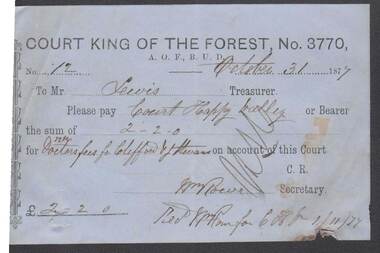 COURT KING OF THE FOREST, No. 3770,
A. O. F., B. U. D.
No. 12 October 31 1877
To Mr Lewis Treasurer.
Please pay Court Happy Valley or Bearer
the sum of 2-2-0
for Doctors fees for Clifford & on account of this Court
C. R.
Wm Rowe Secretary.
£ 2-2-0
Rec'd Wm for C H V 1/11/77